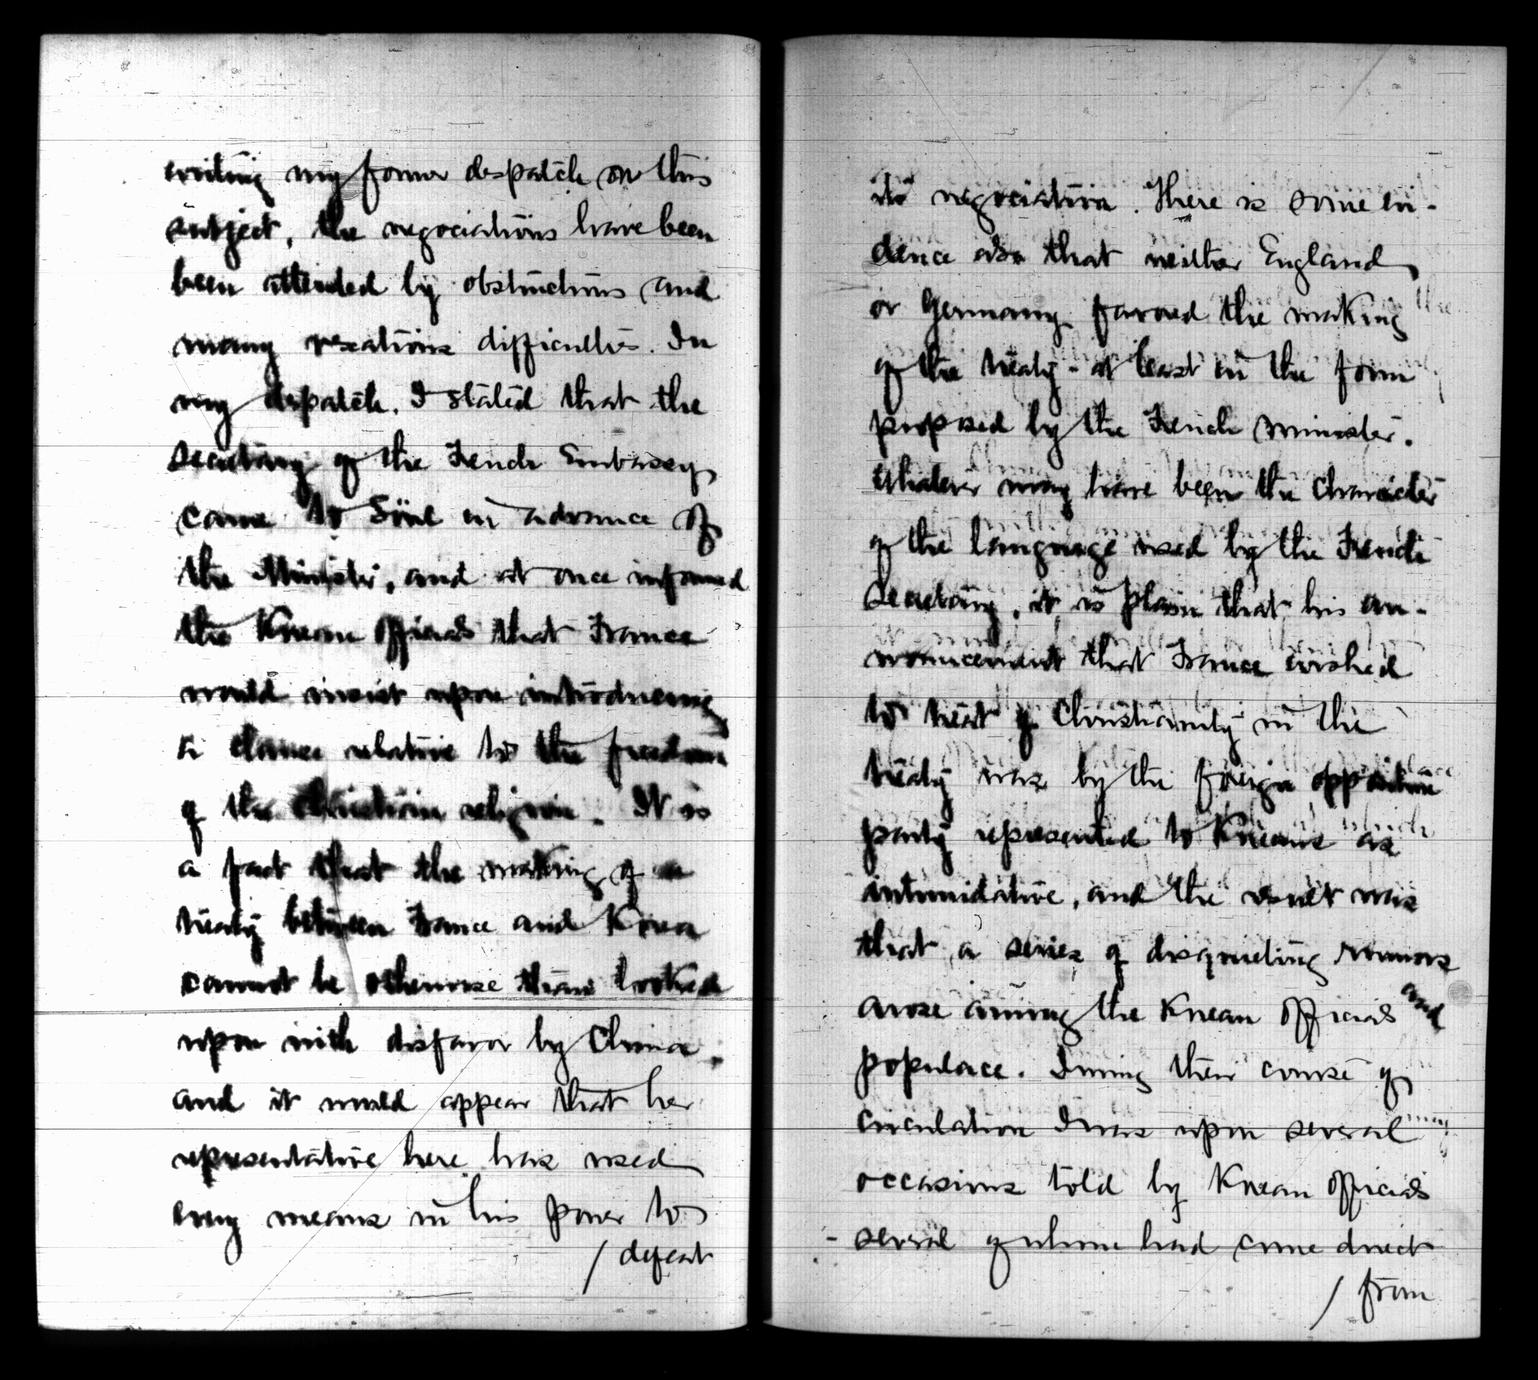 writing my former despatch on this
subject, the negociations have been
been attended by obstructions and
many vexations difficulties. In
my dispatch. I stated that the
Secretary of the French Embassy
came to Söul in advance of
the Minister, and at once informed
the Korean officials that France
would insist upon introducing
a clause relative to the freedom
of the Christian religion. It is
a fact that the making of a
treaty between France and Korea
cannot be otherwise than looked
upon with disfavor by China,
and it would appear that her
representative here has used
every means in his power to
/ defeat
its negociation. There is some evi-
dence also that neither England
or Germany favored the making
of the treaty - at least in the form
proposed by the French Minister.
Whatever may have been the character
of the language used by the French
Secretary, it is plain that his an-
nouncement that France wished
to treat of Christianity in the
treaty was by the foreign opposition
party represented to Koreans as
intimidative, and the result was
that a series of disquieting rumors
arose among the Korean officials and
populace. During their course of
circulation I was upon several
occasions told by Korean officials
several of whom had come direct
/ from